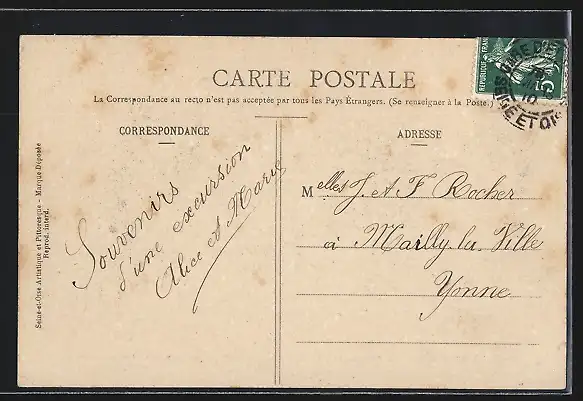 CARTE POSTALE
La Correspondance au recto n'est pas acceptée par tous les Pays Étrangers. (Se renseigner à la Poste.)
CORRESPONDANCE
ADRESSE
Souvenirs
d'une excursion
Alice et Marie
Melles J. et F. Rocher
à Mailly-la-Ville
Yonne
Seine-et-Oise Artistique et Pittoresque - Marque Déposée
Reprod. interd.
REPUBLIQUE FRANÇ
5
SEINE ET OISE
10